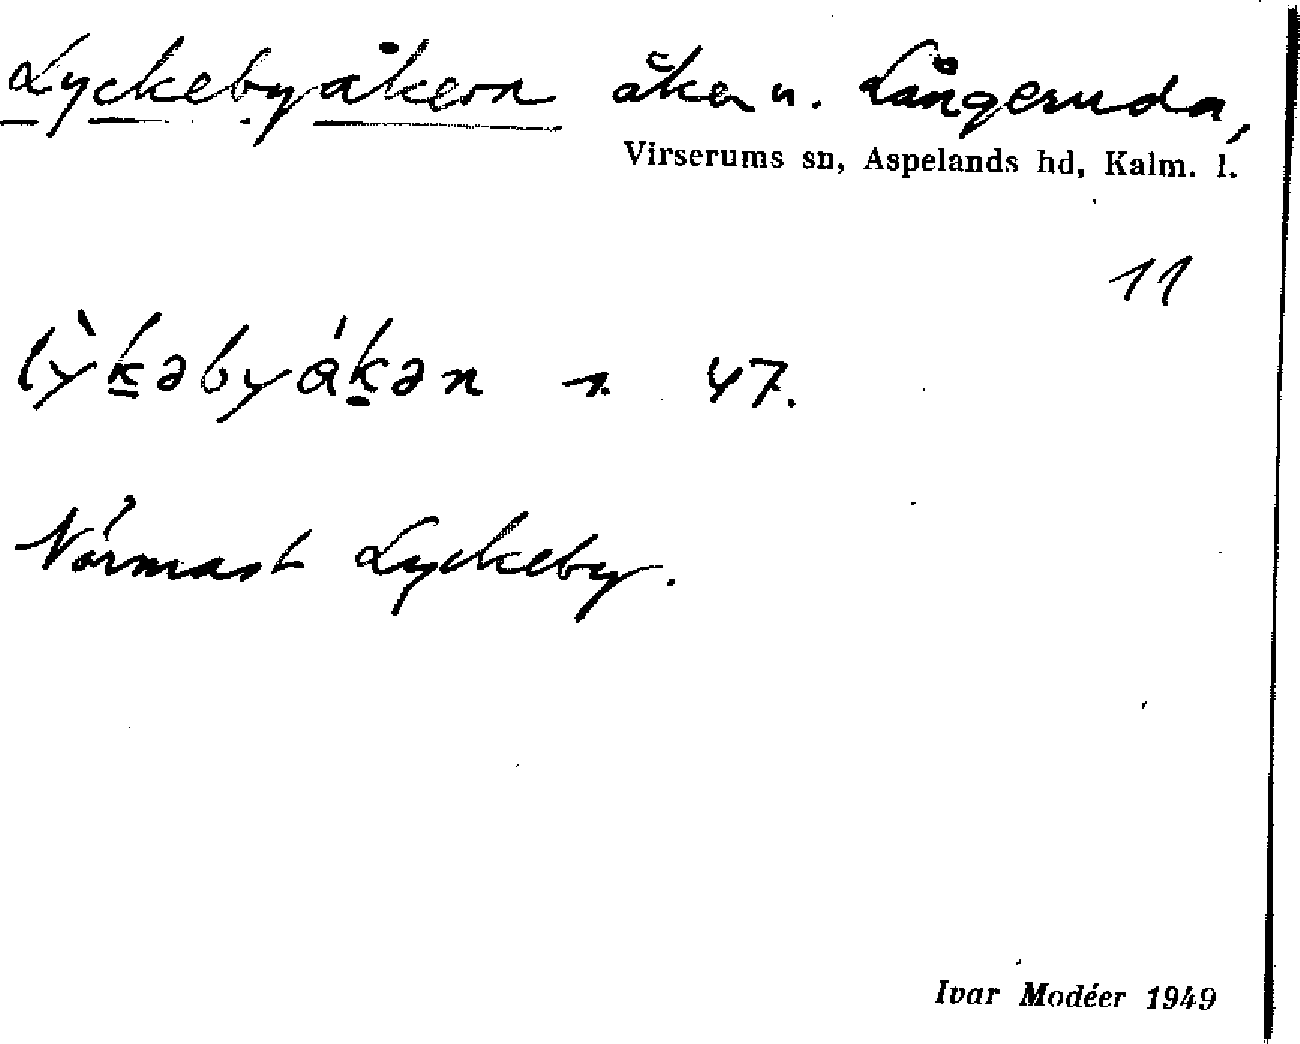 Lyckebyåkern åker u. Långeruda,
Virserums sn, Aspelands hd, Kalm. l.
11
lỳk̠əbyák̠ən n 47.
Närmast Lyckeby.
Ivar Modéer 1949